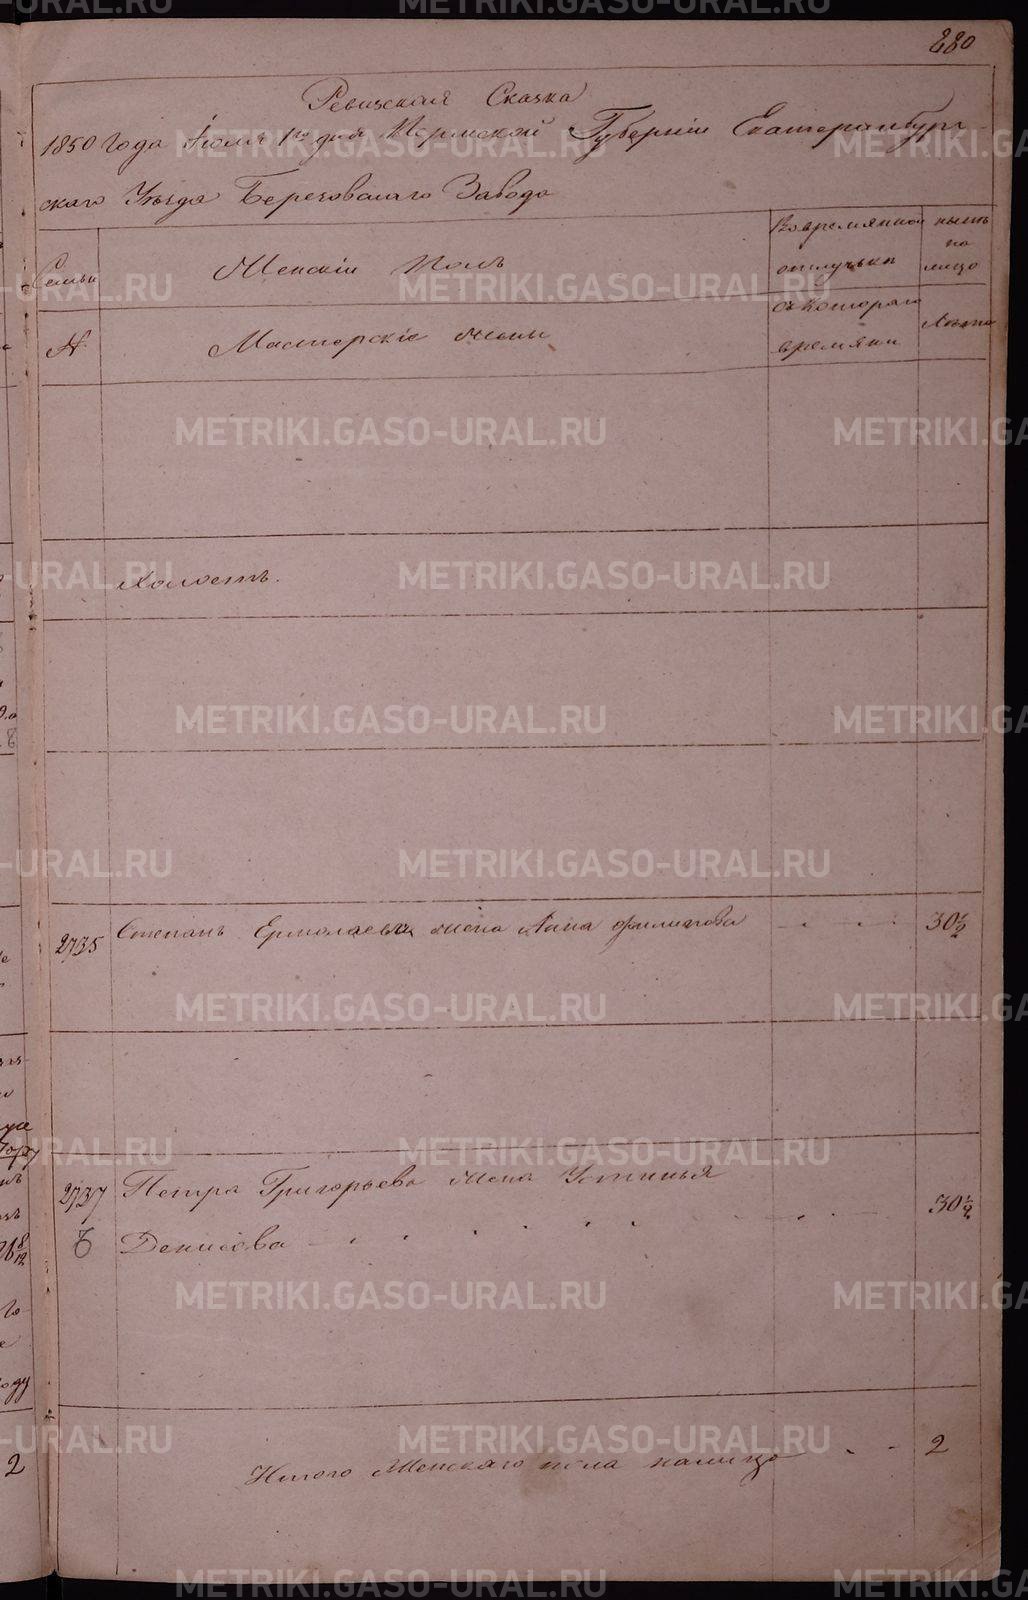 280
Ревизская Сказка
1850 Года Іюля 1го дня Пермской Губерніи Екатеринбург-
скаго Уѣзда Березовскаго Завода
Семьи
Женскій Полъ
Во временной
отлучьки
нынѣ
на
лицо
№
Мастерскіе жоны
съ котораго
времяни
Лѣта
Холостъ.
2735
Степанъ Ермолаева жена Анна Филипова
30 1/2
2737
Петра Григорьева жена Устинья
Б
Денисова
30 1/2
Итого Женскаго пола налицо
2
2
METRIKI.GASO-URAL.RU